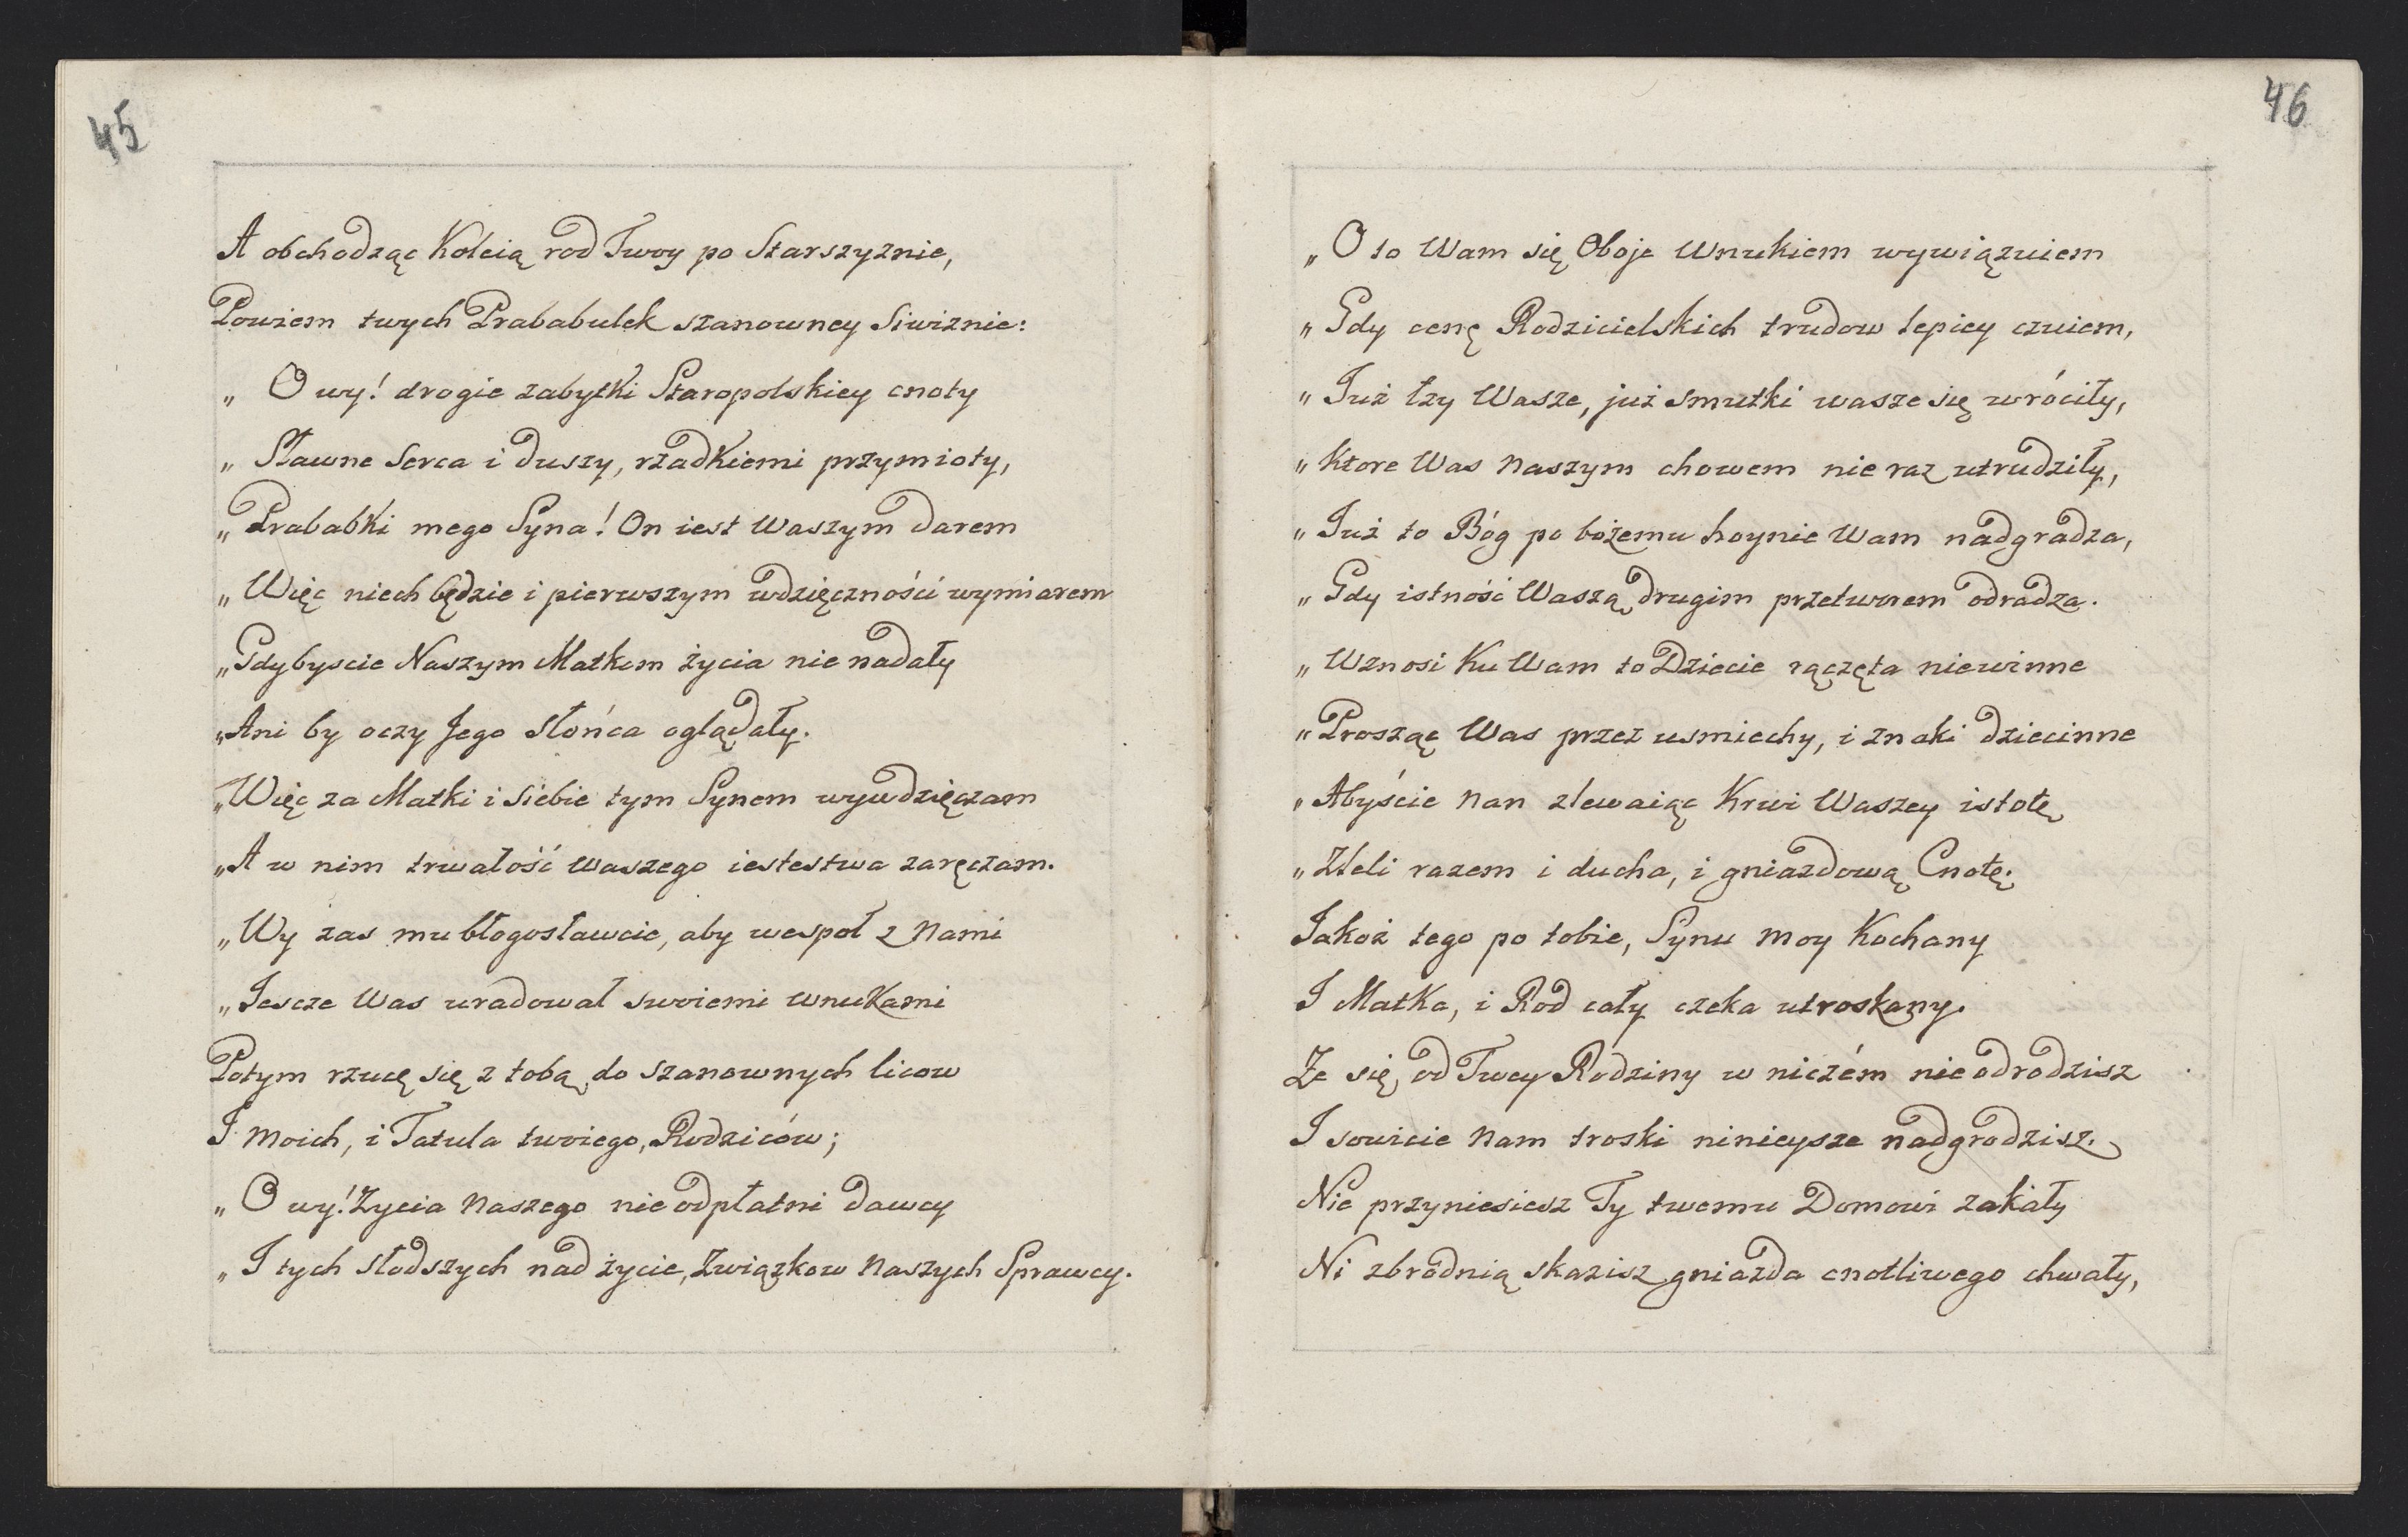 45
A obchodząc Koleią rod Twoy po Starszyznie,
Powiem twych Prababulek szanowney Siwiznie:
„ O wy! drogie zabytki Staropolskiey cnoty
„ Sławne Serca i duszy, rzadkiemi przymioty,
„ Prababki mego Syna! On iest Waszym darem
„ Więc niech będzie i pierwszym wdzięczności wymiarem
„ Gdybyscie Naszym Matkom życia nie nadały
„ Ani by oczy Jego słońca oglądały.
„ Więc za Matki i Siebie tym Synem wywdzięczam
„ A w nim trwałość Waszego iestestwa zaręczam.
„ Wy zas mu błogosławcie, aby wespoł z Nami
„ Jescze Was uradował swoiemi wnukami
Potym rzucę się z tobą do szanownych licow
I moich, i Tatula twoiego, Rodziców;
„ O wy! Zycia Naszego nieodpłatni dawcy
„ I tych słodszych nad życie, Związkow Naszych Sprawcy.
46
„ O to Wam się Oboje Wnukiem wywiązuiem
„ Gdy cenę Rodzicielskich trudow lepiey czuiem,
„ Już łzy Wasze, już smutki wasze się wróciły,
„ Ktore Was Naszym chowem nie raz utrudziły,
„ Już to Bóg po bożemu hoynie Wam nadgradza,
„ Gdy istność Waszą drugim przetworem odradza.
„ Wznosi Ku Wam to Dziecie rączęta niewinne
„ Prosząc Was przez usmiechy, i znaki dziecinne
„ Abyście Nan zlewaiąc Krwi Waszey istotę
„ Zleli razem i ducha, i gniazdową Cnotę.
Jakoż tego po tobie, Synu moy Kochany
I Matka, i Rod cały czeka utroskany.
Ze się od Twey Rodziny w niczém nie odrodzisz
I sowicie Nam troski ninieysze nadgrodzisz.
Nie przyniesiesz Ty twemu Domowi zakały
Ni zbrodnią skazisz gniazda cnotliwego chwały,